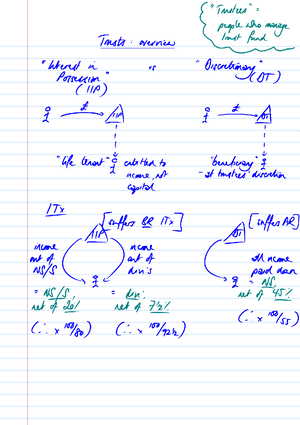 "Trustees" =
people who manage
trust fund
Trusts: overview
"Interest in
Possession"
(IIP)
vs
"Discretionary"
(DT)
£
IIP
£
DT
"life tenant"
entitled to
income, not
capital
"beneficiary"
- at trustees discretion
ITx
[suffers BR ITx]
IIP
income
out of
NS/S
income
out of
div's
= NS/S,
net of 20%
(∴ x 100/80)
= div:
net of 7½%
(∴ x 100/92½)
[suffers AR]
DT
all income
paid down
= NS,
net of 45%
(∴ x 100/55)